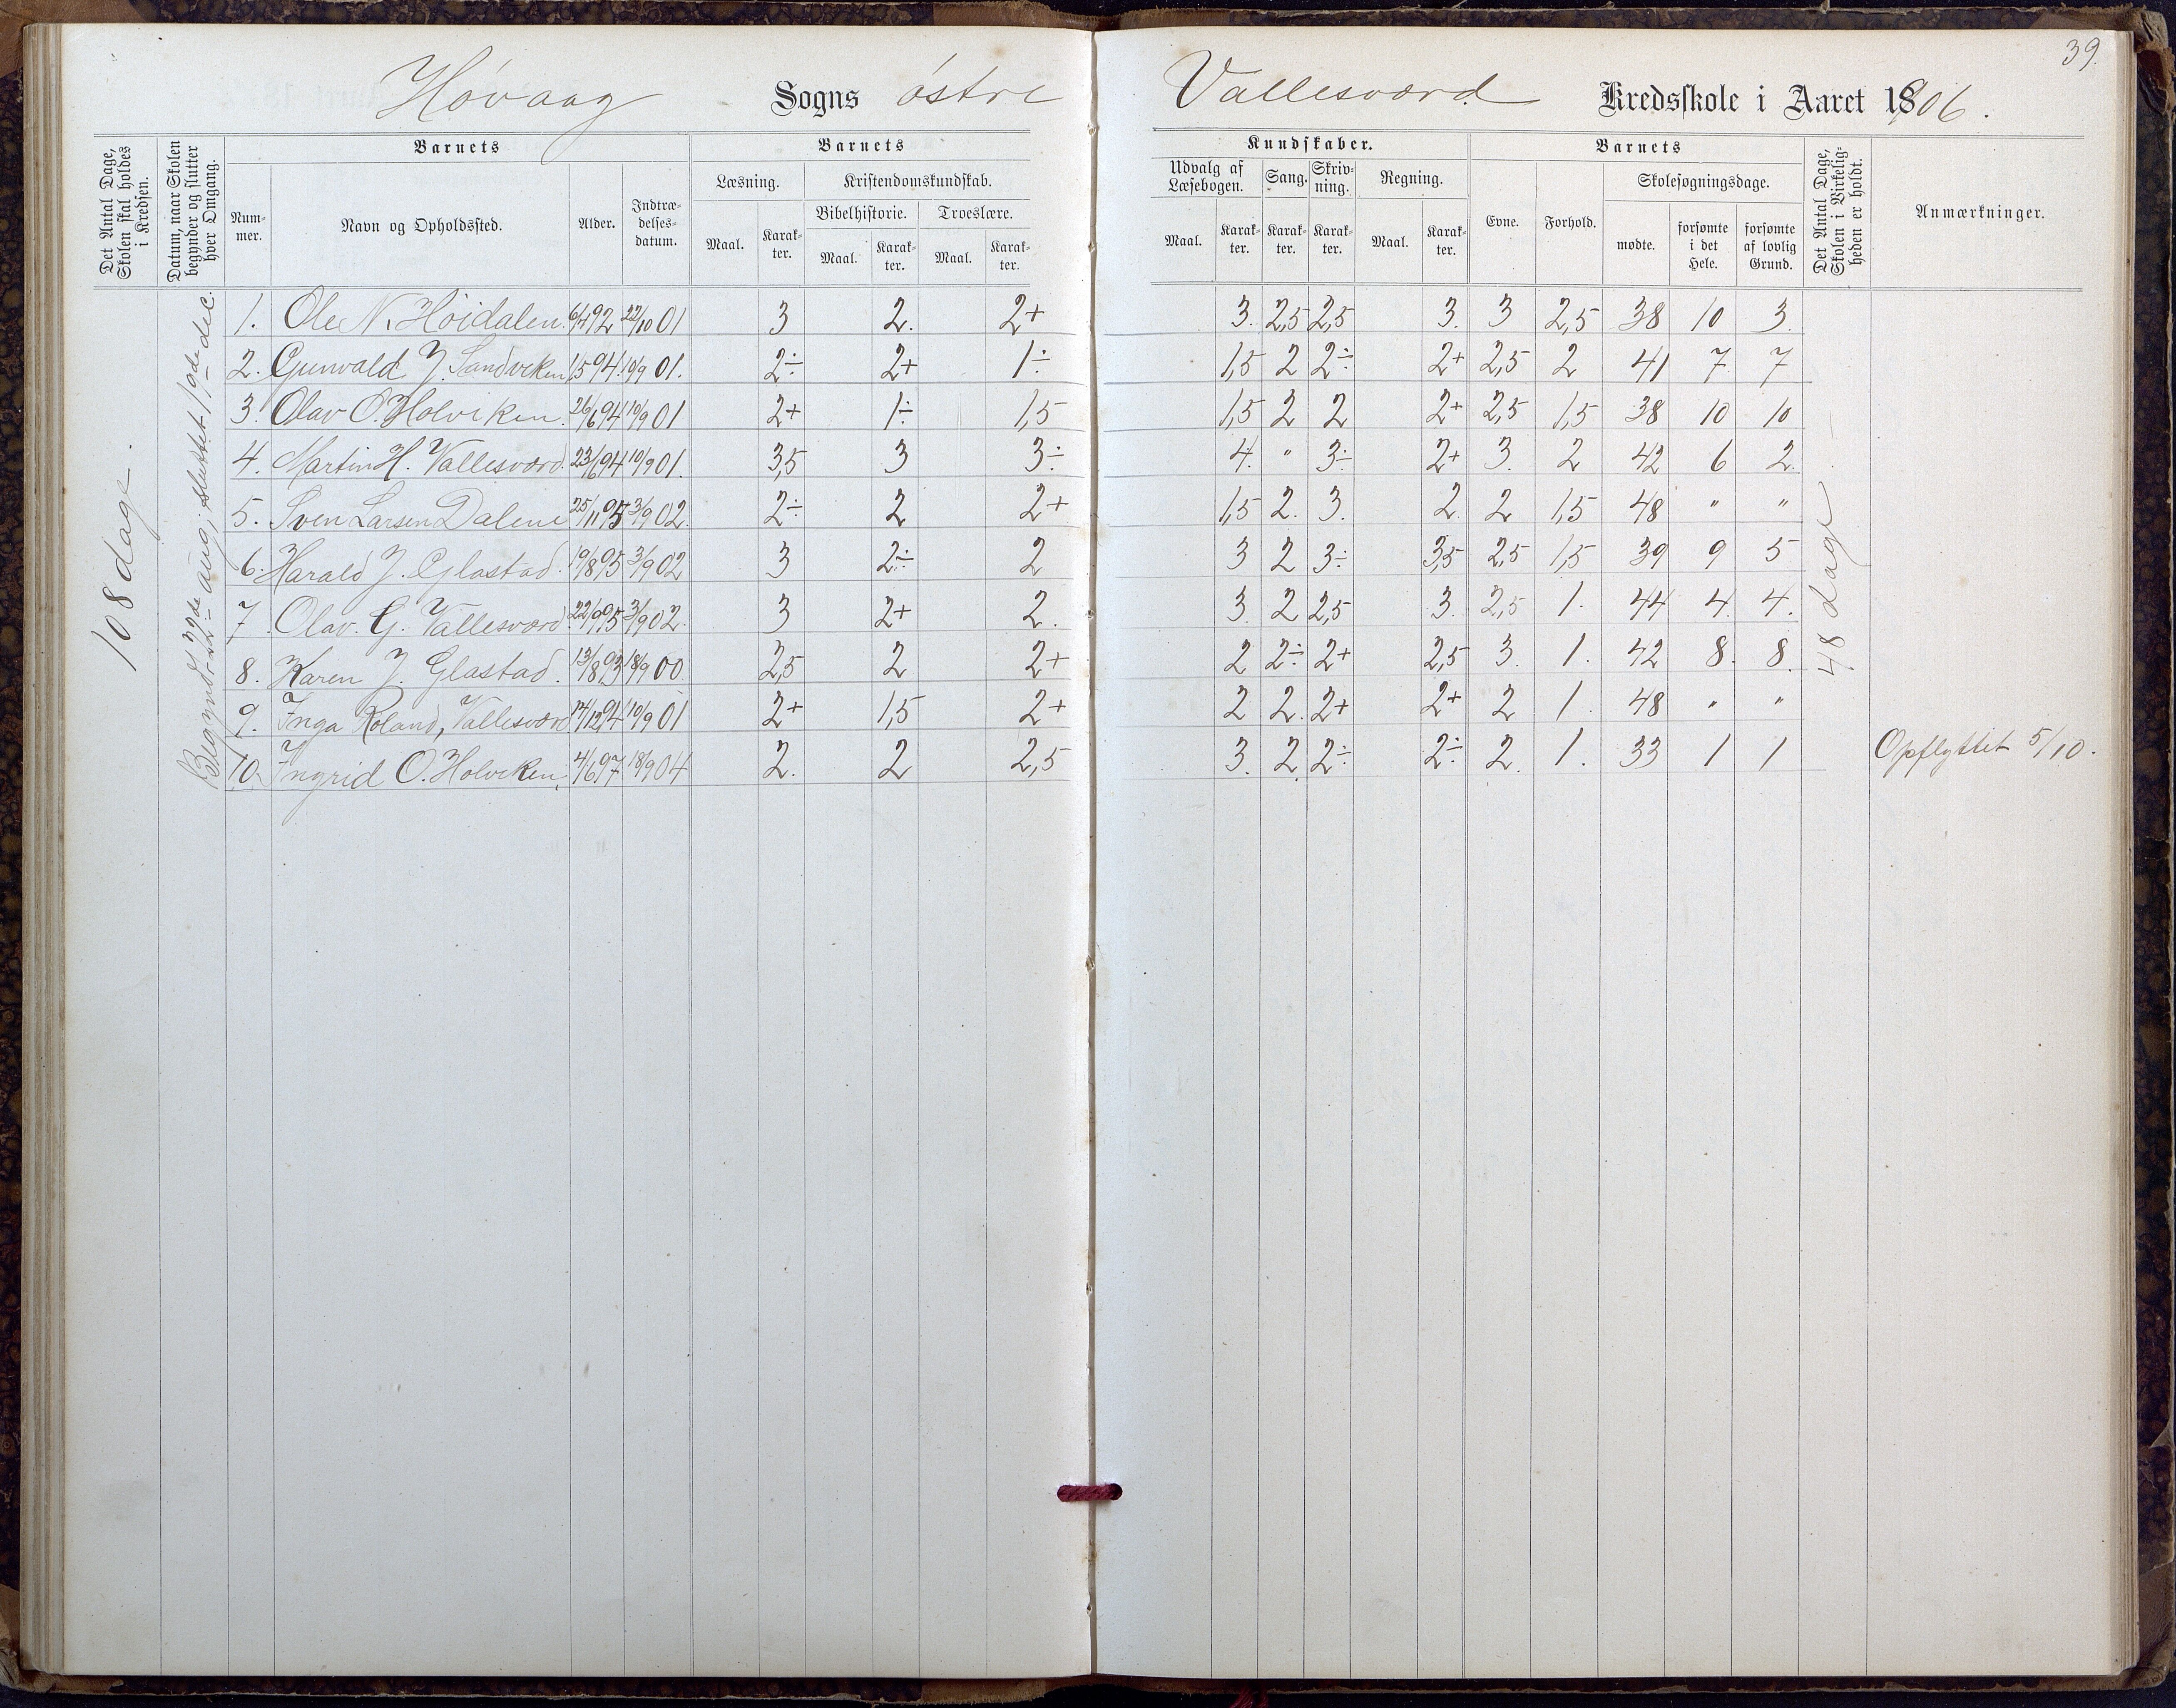 39.
Høvaag Sogns østre Vallesværd Kredsskole i Aaret 1906.
Det Antal Dage, Skolen skal holdes i Kredsen.
Datum, naar Skolen begynder og slutter hver Omgang.
Barnets
Nummer. Navn og Opholdssted. Alder. Indtrædelsesdatum.
Barnets Kundskaber.
Læsning. Kristendomskundskab. Udvalg af Læsebogen. Sang. Skrivning. Regning.
Bibelhistorie. Troeslære.
Maal. Karakter. Maal. Karakter. Maal. Karakter. Maal. Karakter. Karakter. Karakter. Maal. Karakter.
Barnets
Evne. Forhold. Skolesøgningsdage.
mødte. forsømte i det Hele. forsømte af lovlig Grund.
Det Antal Dage, Skolen i Virkeligheden er holdt.
Anmærkninger.
108 dage.
Begyndt 22de aug, sluttet 10de dec.
1. Ole N. Höidalen. 6/4 92 22/10 01 3 2. 2+ 3. 2,5 2,5 3. 3 2,5 38 10 3.
2. Gunvald J. Sandviken 1/5 94. 10/9 01. 2÷ 2+ 1÷ 1,5 2 2÷ 2+ 2,5 2 41 7 7
3. Olav O. Holviken. 26/6 94 10/9 01 2+ 1÷ 1,5 1,5 2 2 2+ 2,5 1,5 38 10 10
4. Martin H. Vallesværd. 23/6 94 10/9 01. 3,5 3 3÷ 4. " 3÷ 2+ 3. 2 42 6 2.
5. Sven Larsen Dalene 25/11 95 3/9 02. 2÷ 2 2+ 1,5 2. 3. 2. 2 1,5 48 " "
6. Harald J. Glastad. 19/8 95 3/9 02 3 2÷ 2 3 2 3÷ 3,5 2,5 1,5 39 9 5
7. Olav. G. Vallesværd. 22/9 95 3/9 02. 3 2+ 2. 3. 2 2,5 3. 2,5 1. 44 4. 4.
8. Karen J. Glastad. 13/8 93 18/9 00. 2,5 2 2+ 2 2÷ 2+ 2,5 3. 1. 42 8. 8.
9. Inga Roland, Vallesværd. 14/12 94 10/9 01 2+ 1,5 2+ 2 2. 2+ 2+ 2 1. 48 " "
10. Ingrid O. Holviken. 4/6 97 18/9 04 2. 2 2,5 3. 2. 2÷ 2÷ 2. 1. 33 1 1 Opflyttet 5/10.
48 dage